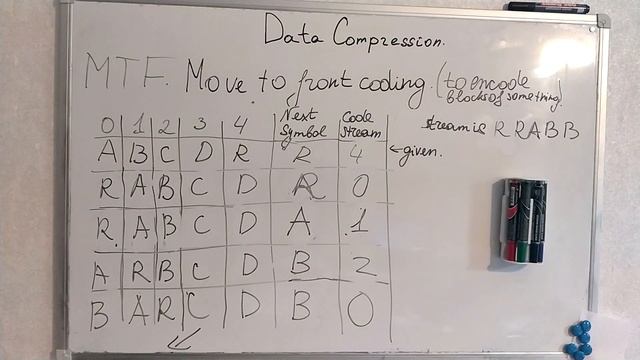 Data Compression.
MTF. Move to front coding. (to encode blocks of something)
stream is R R A B B
0 1 2 3 4 Next Symbol Code Stream
A B C D R R 4 ← given.
R A B C D R 0
R A B C D A 1
A R B C D B 2
B A R C D B 0